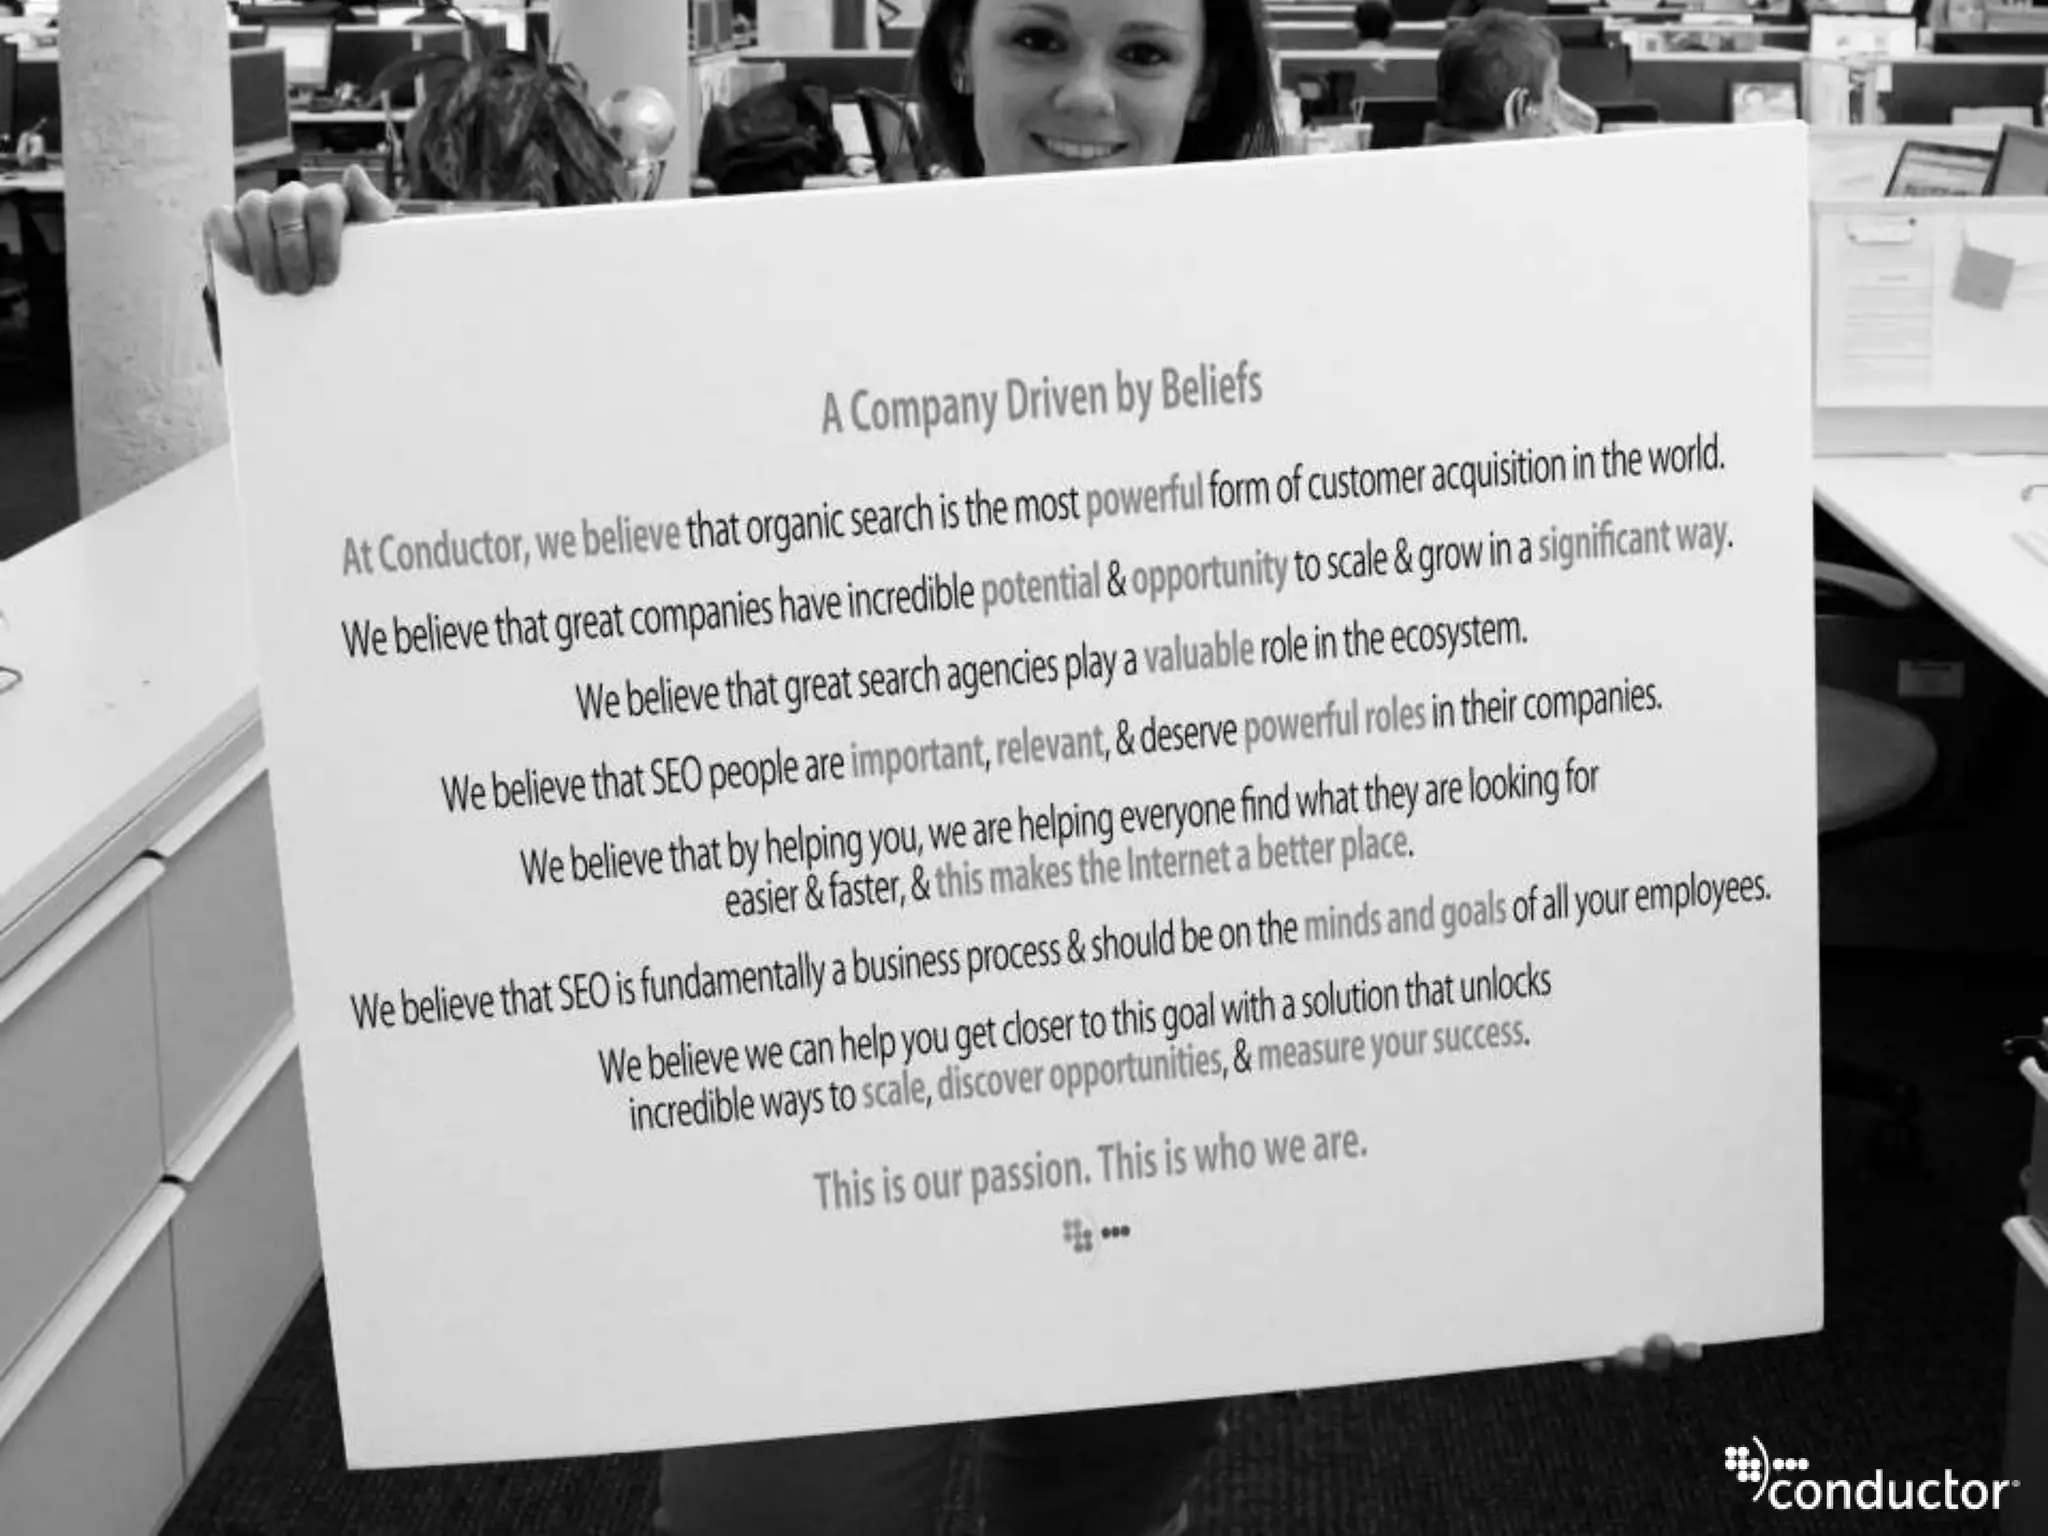 A Company Driven by Beliefs
At Conductor, we believe that organic search is the most powerful form of customer acquisition in the world.
We believe that great companies have incredible potential & opportunity to scale & grow in a significant way.
We believe that great search agencies play a valuable role in the ecosystem.
We believe that SEO people are important, relevant, & deserve powerful roles in their companies.
We believe that by helping you, we are helping everyone find what they are looking for
easier & faster, & this makes the Internet a better place.
We believe that SEO is fundamentally a business process & should be on the minds and goals of all your employees.
We believe we can help you get closer to this goal with a solution that unlocks
incredible ways to scale, discover opportunities, & measure your success.
This is our passion. This is who we are.
conductor